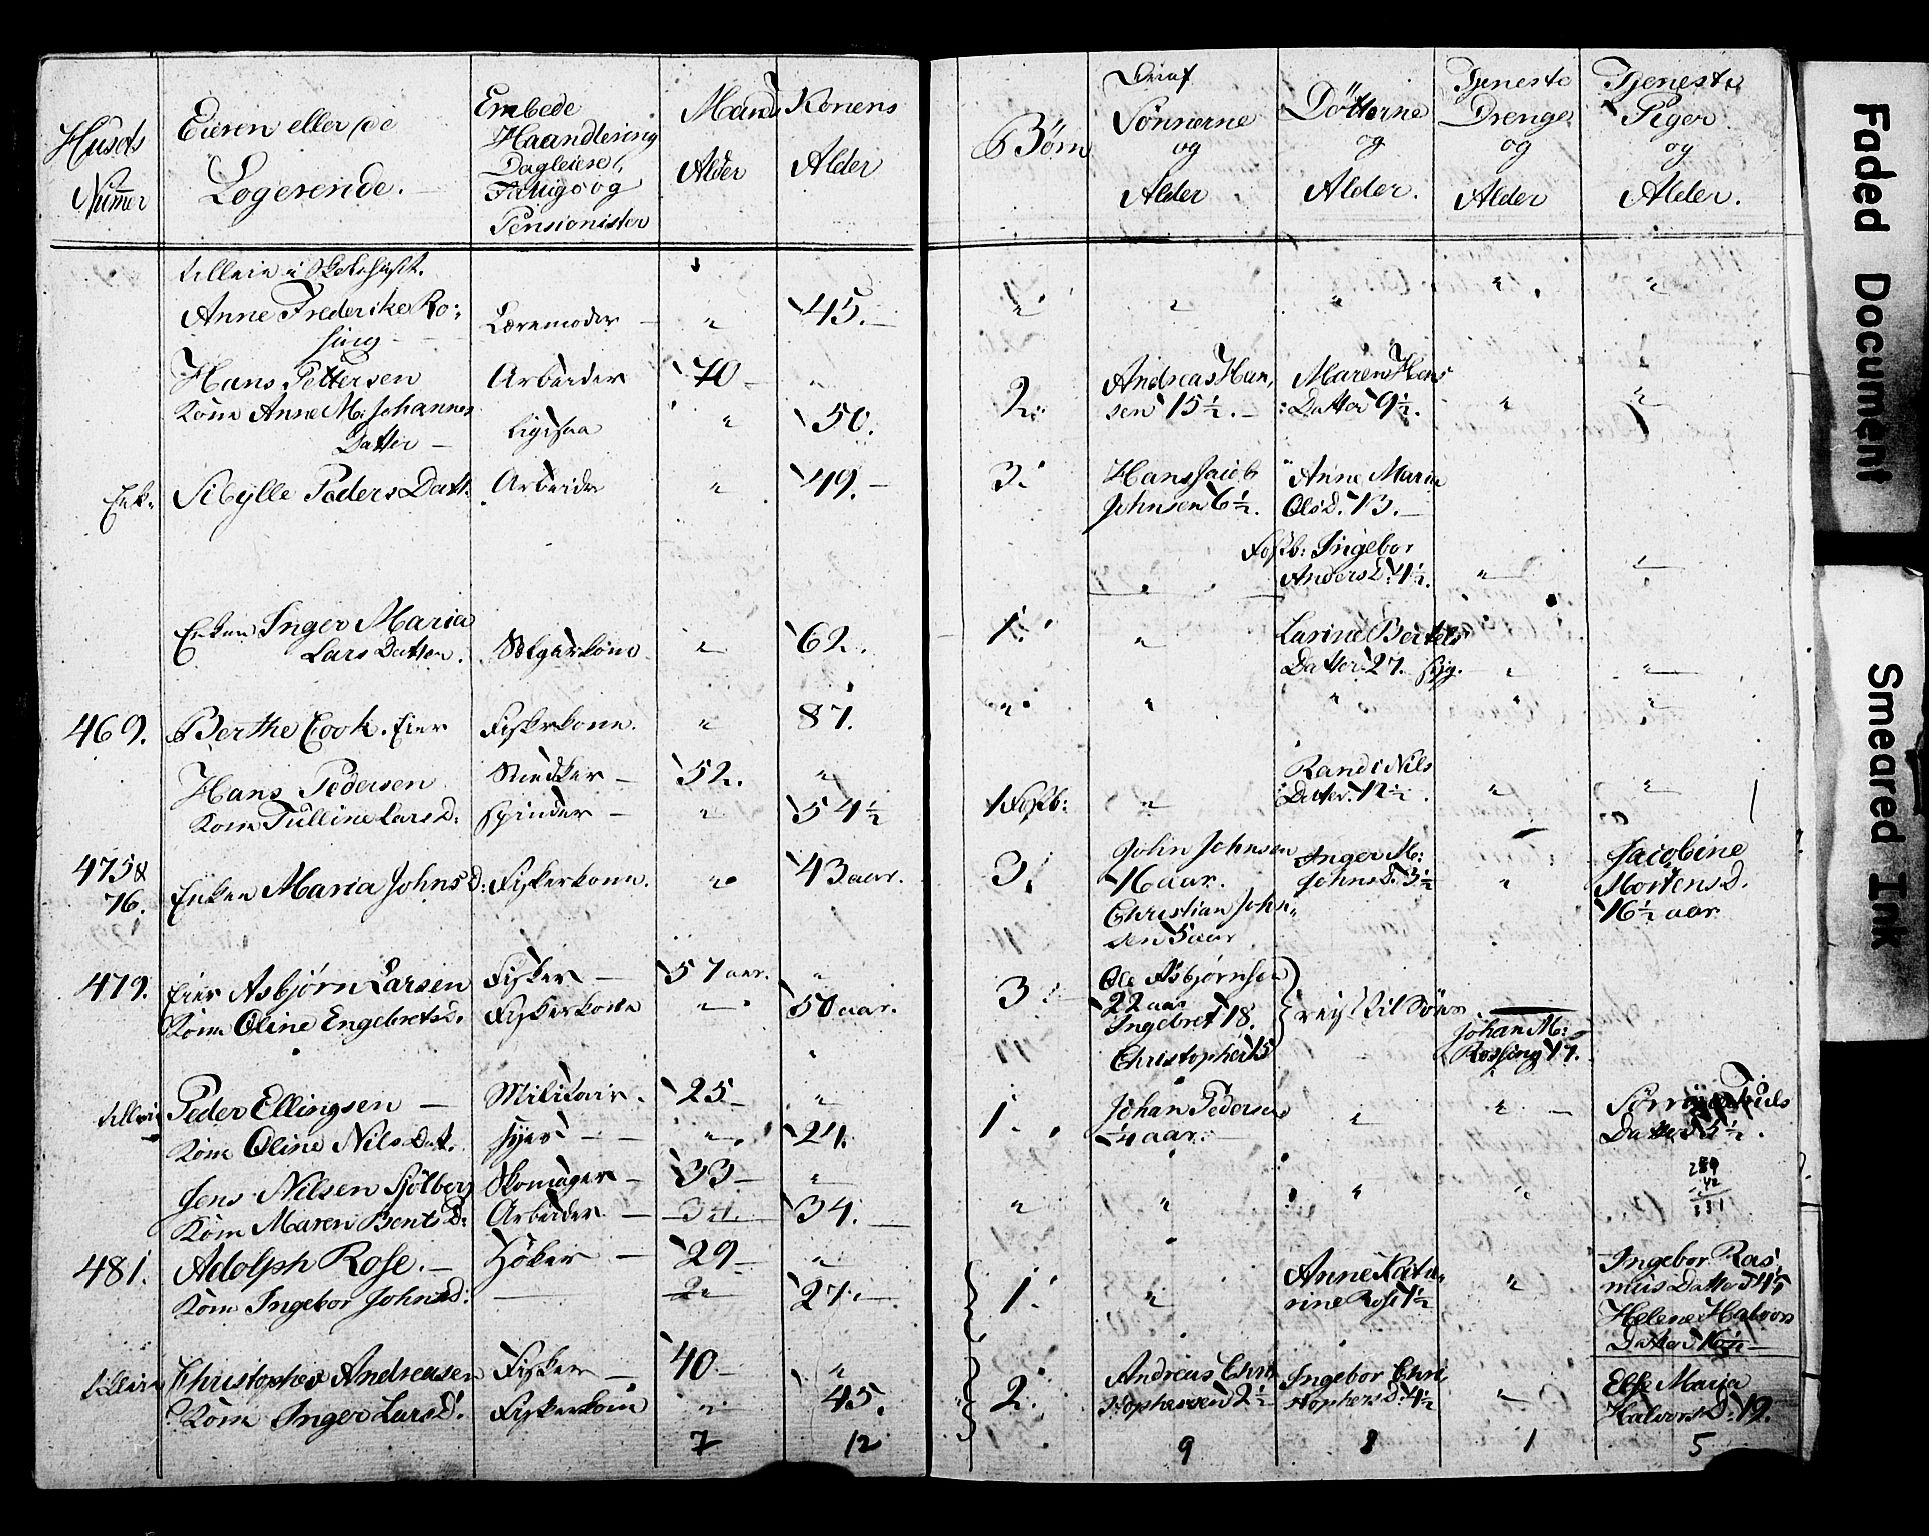 Husets
Nummer
Eieren eller de
Logerende.
Embede
Haandtering
Dagleiere,
Fattige og
Pensionister
Mands
Alder
Konens
Alder
Børn
Deraf
Sönnerne
og
Alder
Döttrene
og
Alder.
Tjeneste
Drenge
og
Alder
Tjeneste
Piger
og
Alder.
Anne Frederike Ro:
sing
Læremoder
"
45.
"
"
"
"
"
Hans Pettersen
Arbeider
70
"
2.
Andreas Han,
sen 15½.
Maren Hans
Datter 9½.
"
"
Kone Anne M. Johannes
Datter
ligesaa
"
50.
Enk:
Sibylle Peders Datt.
Arbeider
"
49.
3.
Hans Jacob
Johnsen 6½.
Anne Maria
Ols D. 13.
Ingebor
Anders D. 4½.
"
Enken Inger Maria
Lars Datter.
"
62.
1.
"
Larine Bertels
Datter 27. syg.
"
"
469.
Berthe Cook. Eier
Fiskerkone.
"
87.
"
"
"
"
"
Hans Pedersen
Snedker
52.
"
1 Fostb:
"
Randi Nils
Datter. 12½.
"
"
Kone Tulline Lars D:
spinder
"
54½
475 &
76.
Enken Maria Johns D:
Fiskerkone.
"
43 aar.
3.
John Johnsen
16 aar.
Christian John,
sen 5 aar
Inger M:
Johns D. 3½
"
Jacobine
Mortens D.
16½ aar.
479.
Eier Asbjörn Larsen
Fisker
57 aar.
"
3.
Ole Asbjørnsen
22 aar
Ingebret 18.
Christopher 15
reist til Söes.
Johan M:
Rossing 17.
Kone Oline Engebrets D.
Fiskerkone
"
50 aar.
Peder Ellingsen
Militair.
25
"
1.
Johan Pedersen
¼ aar.
"
"
Datter 15½.
Kone Oline Nils Dat.
syer
"
24.
Jens Nilsen Sjölberg
Skomager
33
"
"
"
"
"
Kone Maren Bents D:
Arbeider
34.
34.
481.
Adolph Rose.
Höker
29
"
1.
"
Anne Katri
rine Rose 1½
"
Ingebor Ras,
mus Datter 45
Helene Halvors
Datter 16½
Kone Ingebor Johns D:
27.
Christopher Andreasen
Fisker
40
"
2.
Andreas Chri
stophersen 2½
Ingebor Chri
stophers D. 4½
"
Else Maria
Halvors D. 19.
Kone Inger Lars D.
Fiskerkone
"
45.
7
12
9
8
1
5
Faded Document
Smeared Ink